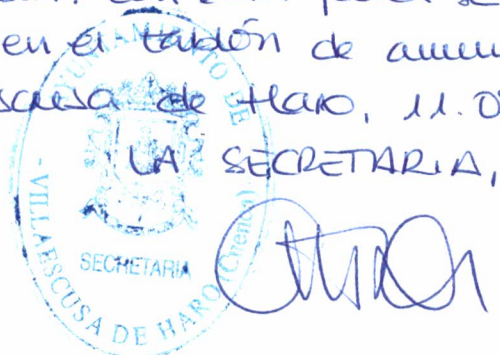 en el tablón de anun
scusa de Haro, 11.0
LA SECRETARIA,
AYUNTAMIENTO DE
VILLAESCUSA DE HARO (Cuenca)
SECRETARIA